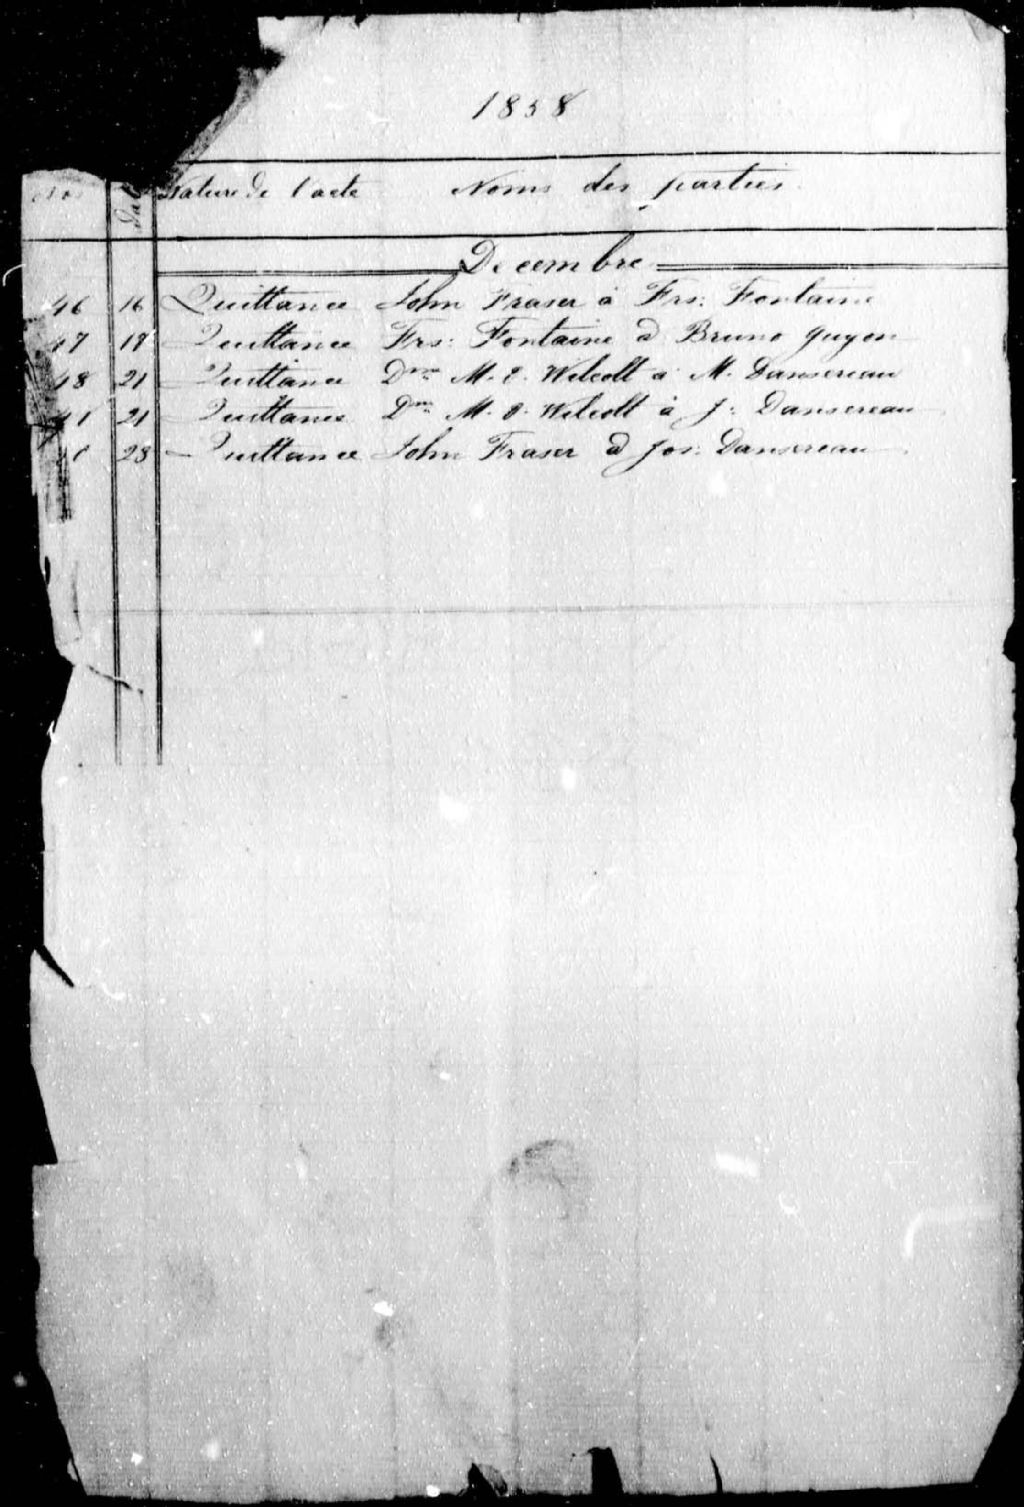 1858
Nos Dat Nature de l'acte Noms des parties
Decembre
46 16 Quittance John Fraser à Frs: Fontaine
47 18 Quittance Frs: Fontaine à Bruno Guyon
48 21 Quittance Dme M. E. Wilcott à M. Dansereau
21 Quittance Dme M. E. Wilcott à J: Dansereau
28 Quittance John Fraser à Jos: Dansereau